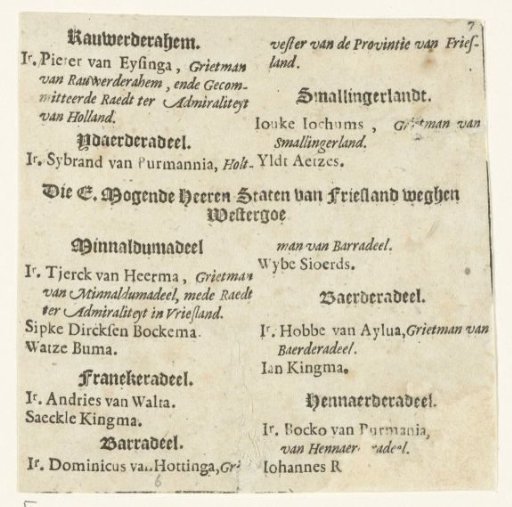 7
Rauwerderahem.
Ir. Pieter van Eysinga, Grietman
van Rauwerderahem, ende Gecom-
mitteerde Raedt ter Admiraliteyt
van Holland.
Ydaerderadeel.
Ir. Sybrand van Purmannia, Holt-
vester van de Provintie van Fries-
land.
Smallingerlandt.
Iouke Iochums, Grietman van
Smallingerland.
Yldt Aetzes.
Die E. Mogende Heeren Staten van Friesland weghen
Westergoe
Minnaldumadeel
Ir. Tjerck van Heerma, Grietman
van Minnaldumadeel, mede Raedt
ter Admiraliteit in Vriesland.
Sipke Dircksen Bockema.
Watze Buma.
Franekeradeel.
Ir. Andries van Walta.
Saeckle Kingma.
Barradeel.
Ir. Dominicus van Hottinga, Gri
man van Barradeel.
Wybe Sioerds.
Baerderadeel.
Ir. Hobbe van Aylua, Grietman van
Baerderadeel.
Ian Kingma.
Hennaerderadeel.
Ir. Bocko van Purmania,
van Hennaer adeel.
Iohannes R
6